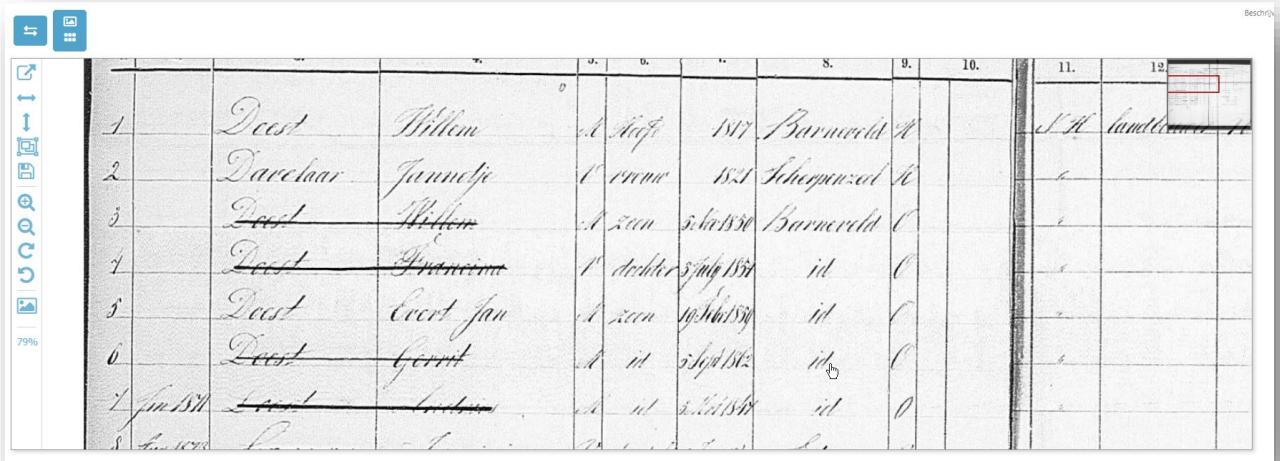 Beschrijv
6. 8. 9. 10. 11. 12.
1 Doest Willem M Hoofd 1817 Barneveld H N H landbouwer
2 Davelaar Jannetje V vrouw 1821 Scherpenzeel H "
3 Doest Willem M zoon 5 Nov 1850 Barneveld O "
4 Doest Francina V dochter 3 July 1851 id O "
5 Doest Evert Jan M zoon 19 Febr 1859 id O "
6 Doest Gerrit M id 5 Sept 1862 id O "
7 Doest M id id O
8
79%